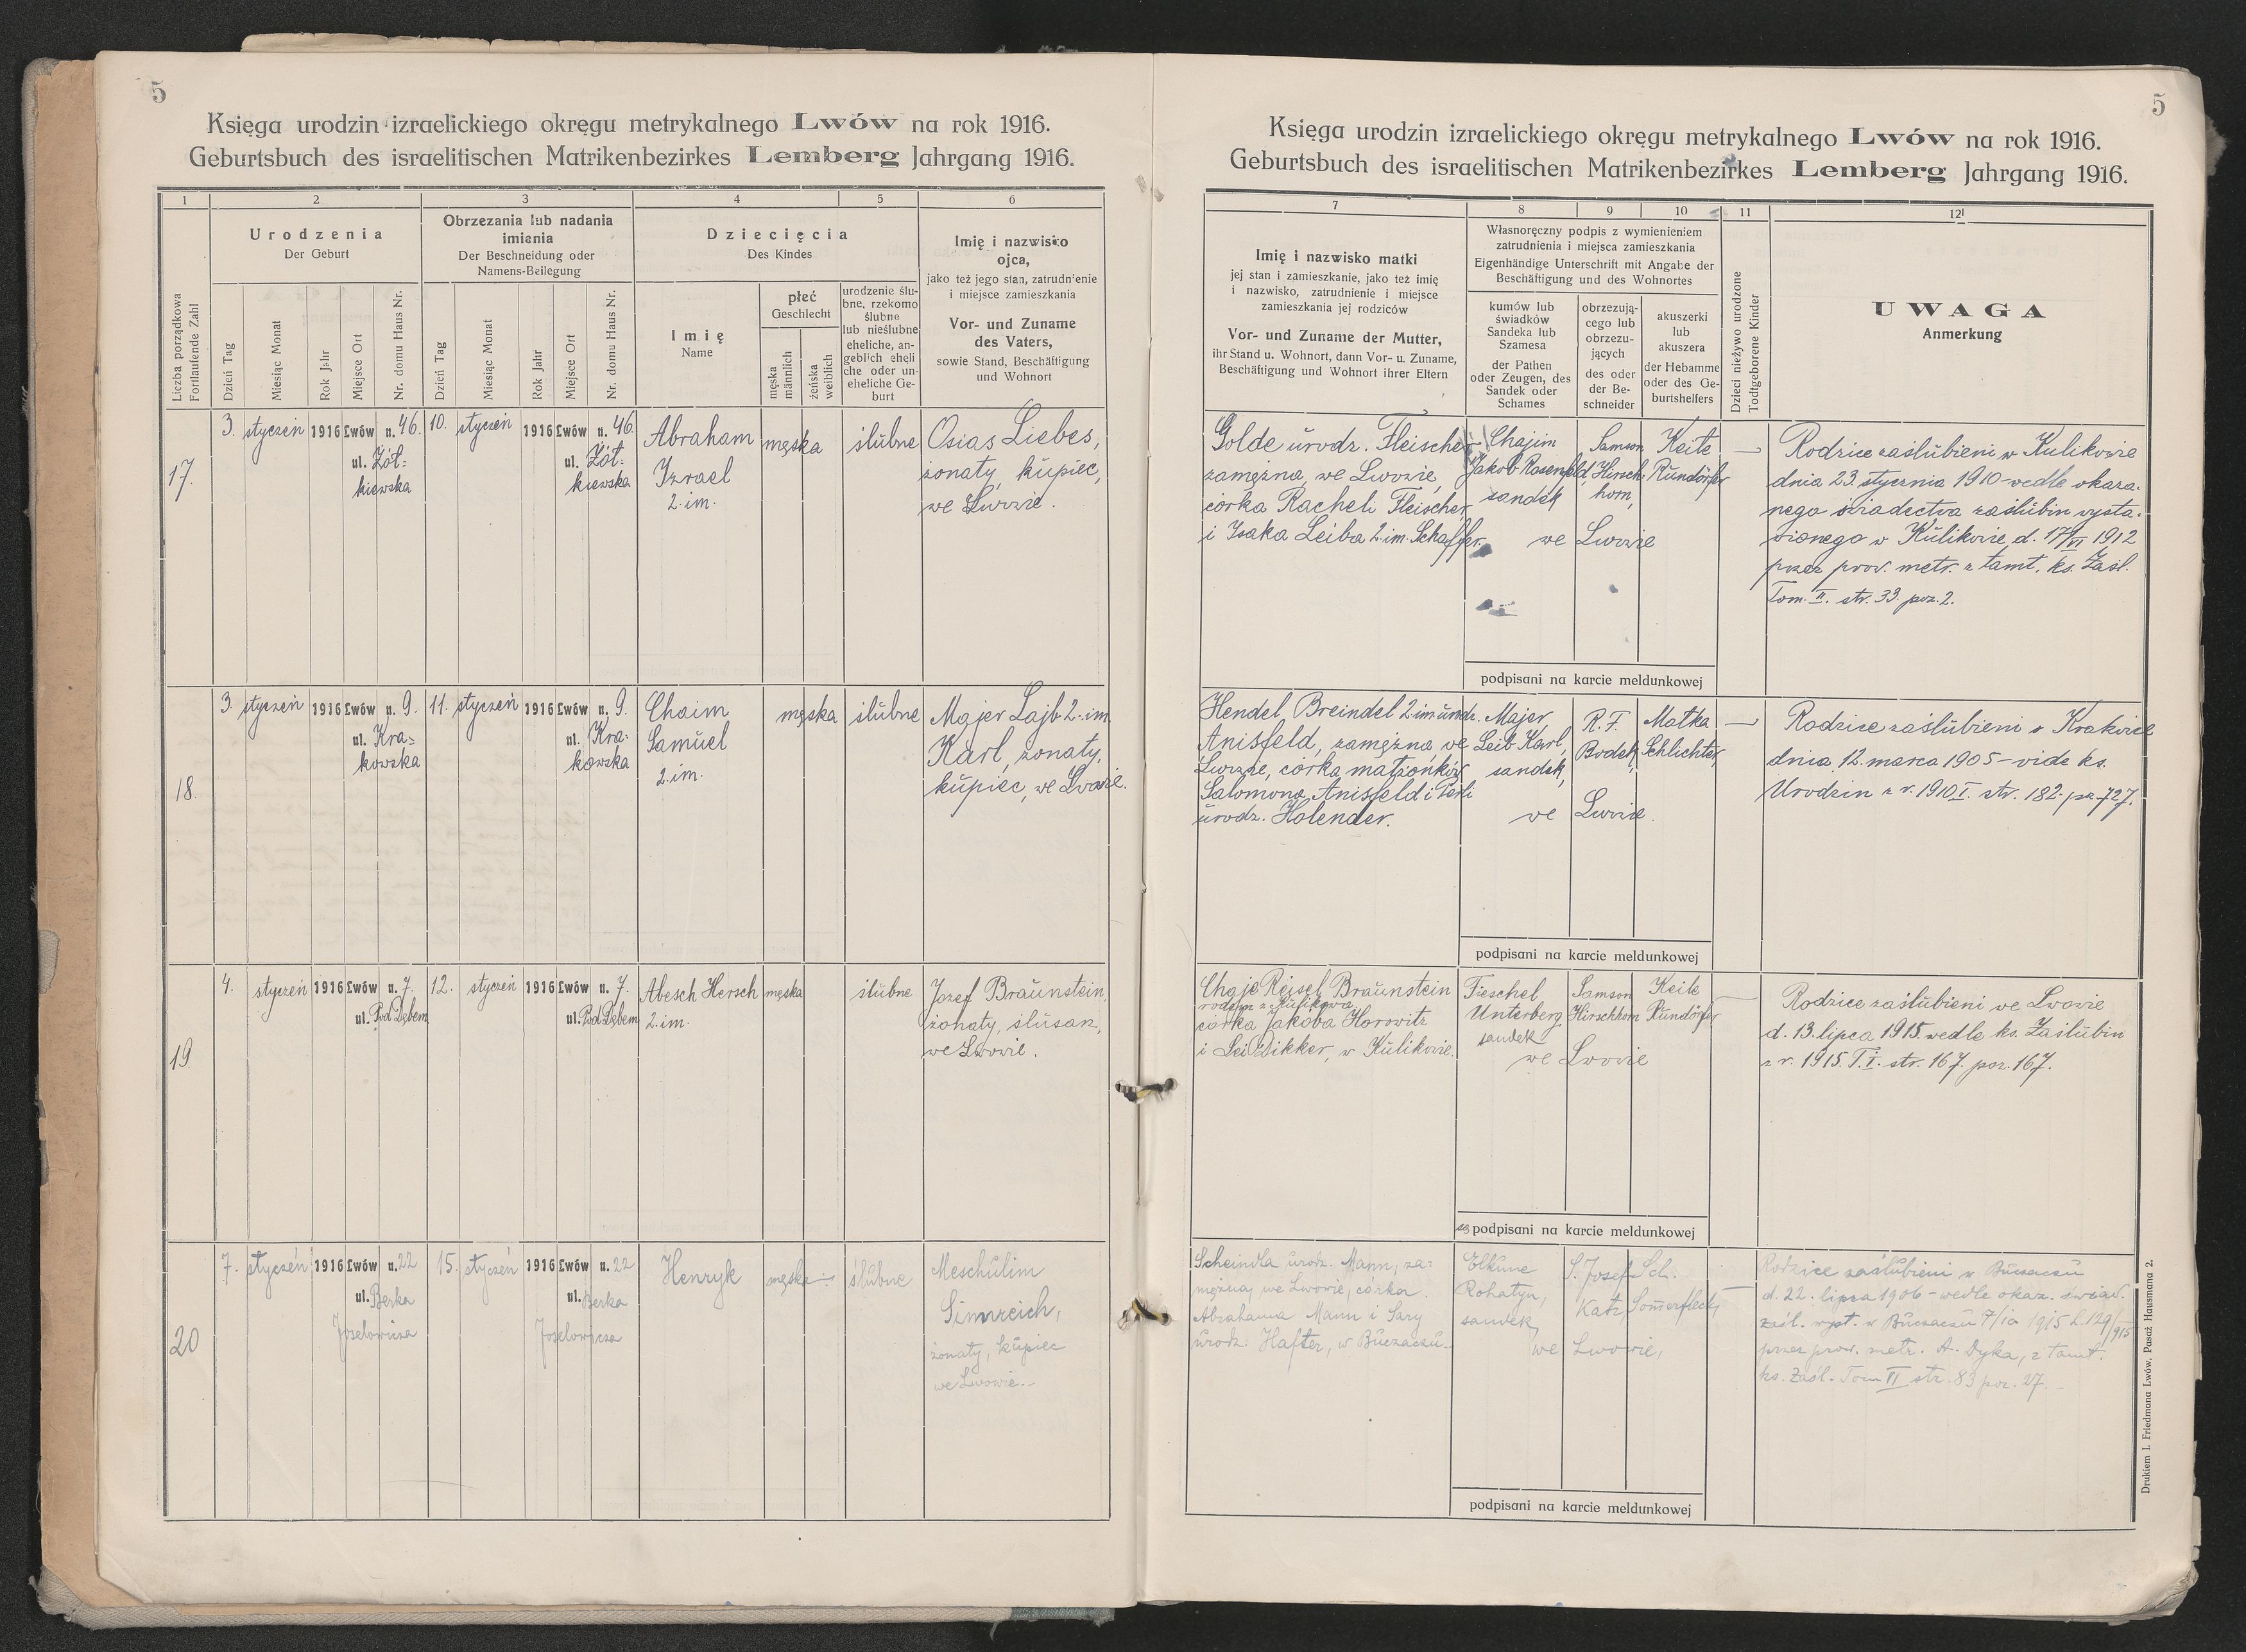 5
Księga urodzin izraelickiego okręgu metrykalnego Lwów na rok 1916.
Geburtsbuch des israelitischen Matrikenbezirkes Lemberg Jahrgang 1916.
1 2 3 4 5 6
Liczba porządkowa
Fortlaufende Zahl
Urodzenia
Der Geburt
Dzień Tag
Miesiąc Monat
Rok Jahr
Miejsce Ort
Nr. domu Haus Nr.
Obrzezania lub nadania
imienia
Der Beschneidung oder
Namens-Beilegung
Dzień Tag
Miesiąc Monat
Rok Jahr
Miejsce Ort
Nr. domu Haus Nr.
Dziecięcia
Des Kindes
Imię
Name
płeć
Geschlecht
męska
männlich
żeńska
weiblich
urodzenie ślu-
bne, rzekomo
ślubne
lub nieślubne
eheliche, an-
geblich eheli
che oder un-
eheliche Ge-
burt
Imię i nazwisko
ojca,
jako też jego stan, zatrudnienie
i miejsce zamieszkania
Vor- und Zuname
des Vaters,
sowie Stand, Beschäftigung
und Wohnort
17.
3. styczeń 1916 Lwów n. 46.
ul. Żół-
kiewska
10. styczeń 1916 Lwów n. 46.
ul. Żół-
kiewska
Abraham
Izrael
2. im.
męska
ślubne
Osias Liebes,
żonaty, kupiec,
we Lwowie.
18.
3. styczeń 1916 Lwów n. 9.
ul. Kra-
kowska
11. styczeń 1916 Lwów n. 9.
ul. Kra-
kowska
Chaim
Samuel
2. im.
męska
ślubne
Majer Lajb 2. im.
Karl, żonaty,
kupiec, we Lwowie.
19.
4. styczeń 1916 Lwów n. 7.
ul. Pod Dębem
12. styczeń 1916 Lwów n. 7.
ul. Pod Dębem
Abesch Hersch
2. im.
męska
ślubne
Jozef Braunstein,
żonaty, ślusarz,
we Lwowie.
20
7. styczeń 1916 Lwów n. 22
ul. Berka
Joselowicza
15. styczeń 1916 Lwów n. 22
ul. Berka
Joselowicza
Henryk
męska
ślubne
Meschulim
Simreich,
żonaty, kupiec
we Lwowie.
5
Księga urodzin izraelickiego okręgu metrykalnego Lwów na rok 1916.
Geburtsbuch des israelitischen Matrikenbezirkes Lemberg Jahrgang 1916.
7 8 9 10 11 12
Imię i nazwisko matki
jej stan i zamieszkanie, jako też imię
i nazwisko, zatrudnienie i miejsce
zamieszkania jej rodziców
Vor- und Zuname der Mutter,
ihr Stand u. Wohnort, dann Vor- u. Zuname,
Beschäftigung und Wohnort ihrer Eltern
Własnoręczny podpis z wymienieniem
zatrudnienia i miejsca zamieszkania
Eigenhändige Unterschrift mit Angabe der
Beschäftigung und des Wohnortes
kumów lub
świadków
Sandeka lub
Szamesa
der Pathen
oder Zeugen, des
Sandek oder
Schames
obrzezują-
cego lub
obrzezu-
jących
des oder
der Be-
schneider
akuszerki
lub
akuszera
der Hebamme
oder des Ge-
burtshelfers
Dzieci nieżywo urodzone
Todtgeborene Kinder
UWAGA
Anmerkung
Golde urodz. Fleischer
zamężna, we Lwowie,
córka Racheli Fleischer
i Isaka Leiba 2. im. Schaffer.
Chajim
Jakob Rosenfeld,
sandek
Samson
Hirsch-
horn,
Keile
Rundörfer
we Lwowie
—
Rodzice zaślubieni w Kulikowie
dnia 23. stycznia 1910 - wedle okaza-
nego świadectwa zaślubin wysta-
wionego w Kulikowie d. 17/VI 1912
przez prow. metr. z tamt. ks. Zaśl.
Tom. II. str. 33. poz. 2.
podpisani na karcie meldunkowej
Hendel Breindel 2. im. urodz.
Anisfeld, zamężna we
Lwowie, córka małżonków
Salomona Anisfeld i Perli
urodz. Holender.
Majer
Leib Karl,
sandek,
R. F.
Bodek,
Matka
Schlichter,
we Lwowie.
—
Rodzice zaślubieni w Krakowie
dnia 12. marca 1905 - vide ks.
Urodzin z r. 1910 I. str. 182. poz. 727.
podpisani na karcie meldunkowej
Chaje Reisel Braunstein
rodem z Kulikowa
córka Jakóba Horowitz
i Lei Dikker, w Kulikowie.
Fieschel
Unterberg
sandek
Samson
Hirschhorn
Keile
Rundörfer
we Lwowie
—
Rodzice zaślubieni we Lwowie
d. 13. lipca 1915. wedle ks. Zaślubin
z r. 1915. T. I. str. 167. poz. 167.
podpisani na karcie meldunkowej
Scheindla urodz. Mann, za-
mężna, we Lwowie, córka
Abrahama Mann i Sary
urodz. Hafter, w Buczaczu.
Elkune
Rohatyn,
sandek,
S. Josef
Katz,
Sch.
Somerfleck,
we Lwowie,
—
Rodzice zaślubieni w Buczaczu
d. 22. lipca 1906 - wedle okaz. świad.
zaśl. wyst. w Buczaczu 7/10 1915 L. 129/915
przez prow. metr. A. Dyka, z tamt.
ks. Zaśl. Tom VI str. 83 poz. 27.
podpisani na karcie meldunkowej
Drukiem I. Friedmana Lwów, Pasaż Hausmana 2.